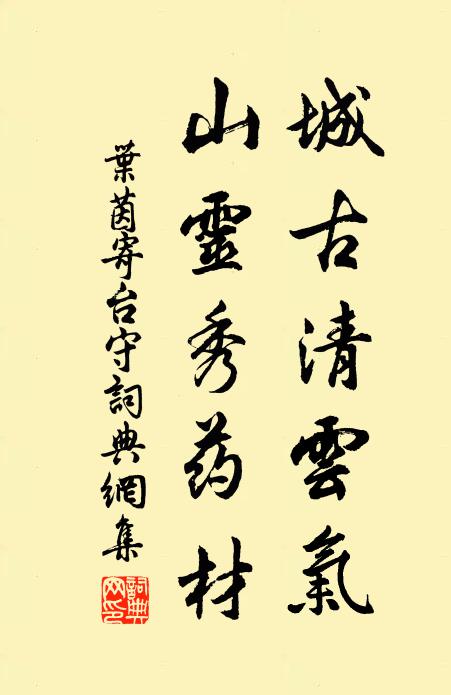 城古清雲氣
山靈秀药材
葉茵寄台守詞典網集
詞典網印